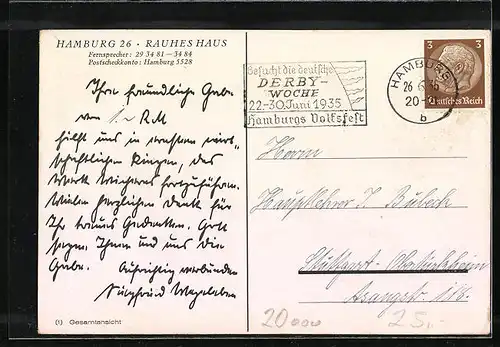 HAMBURG 26 · RAUHES HAUS
Fernsprecher: 29 34 81—34 84
Postscheckkonto: Hamburg 5528
Ihre freundliche Gabe
von 1.- RM
hilft uns in
schaftlichen Ringen, das
Werk Wicherns fortzuführen.
Vielen herzlichen Dank für
Ihr treues Gedenken. Gott
segne Ihnen und uns die
Gabe. Aufrichtig verbunden
Siegfried Wegeleben
(1) Gesamtansicht
Besucht die deutsche
DERBY-
WOCHE
22.-30. Juni 1935
Hamburgs Volksfest
HAMBURG
26.6.35
20-
b
3 3
Deutsches Reich
Herrn
Hauptlehrer J. Bubeck
Stuttgart-Obertürkheim
Asangstr. 186.
20000 25.-